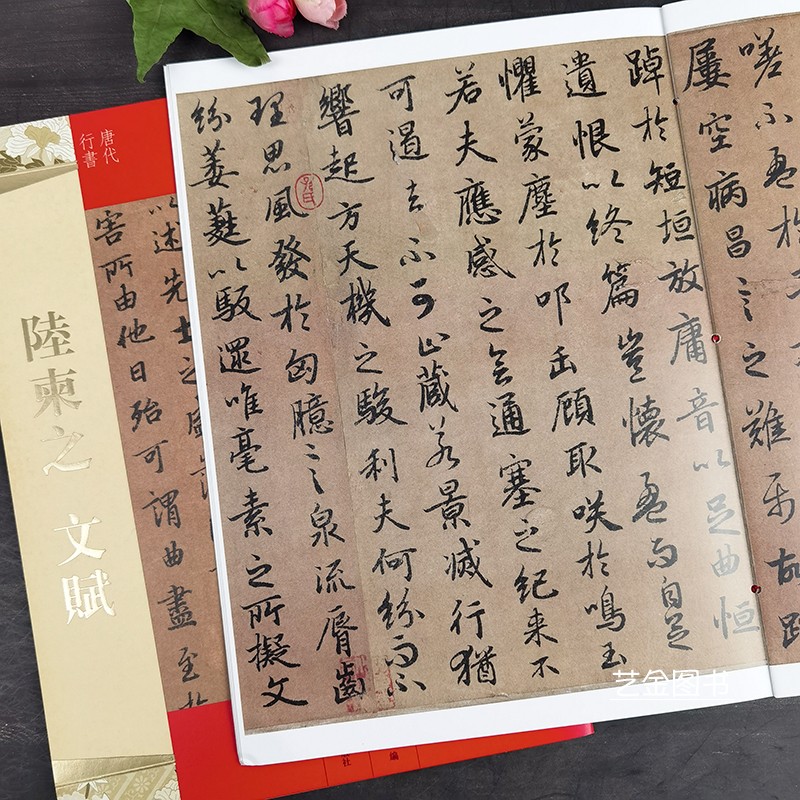 嗟不盈於予
屢空病昌言之難屬故踸
踔於短垣放庸音以足曲恒
遺恨以終篇豈懷盈而自足
懼蒙塵於叩缶顧取咲於鳴玉
若夫應感之會通塞之紀來不
可遏去不可止藏若景滅行猶
響起方天機之駿利夫何紛而不
理思風發於匈臆言泉流脣齒
紛萎蕤以馺遝唯毫素之所擬文
唐代
行書
以述先士之盛藻
害所由他日殆可謂曲盡至於
陸柬之 文賦
編
社
艺金图书